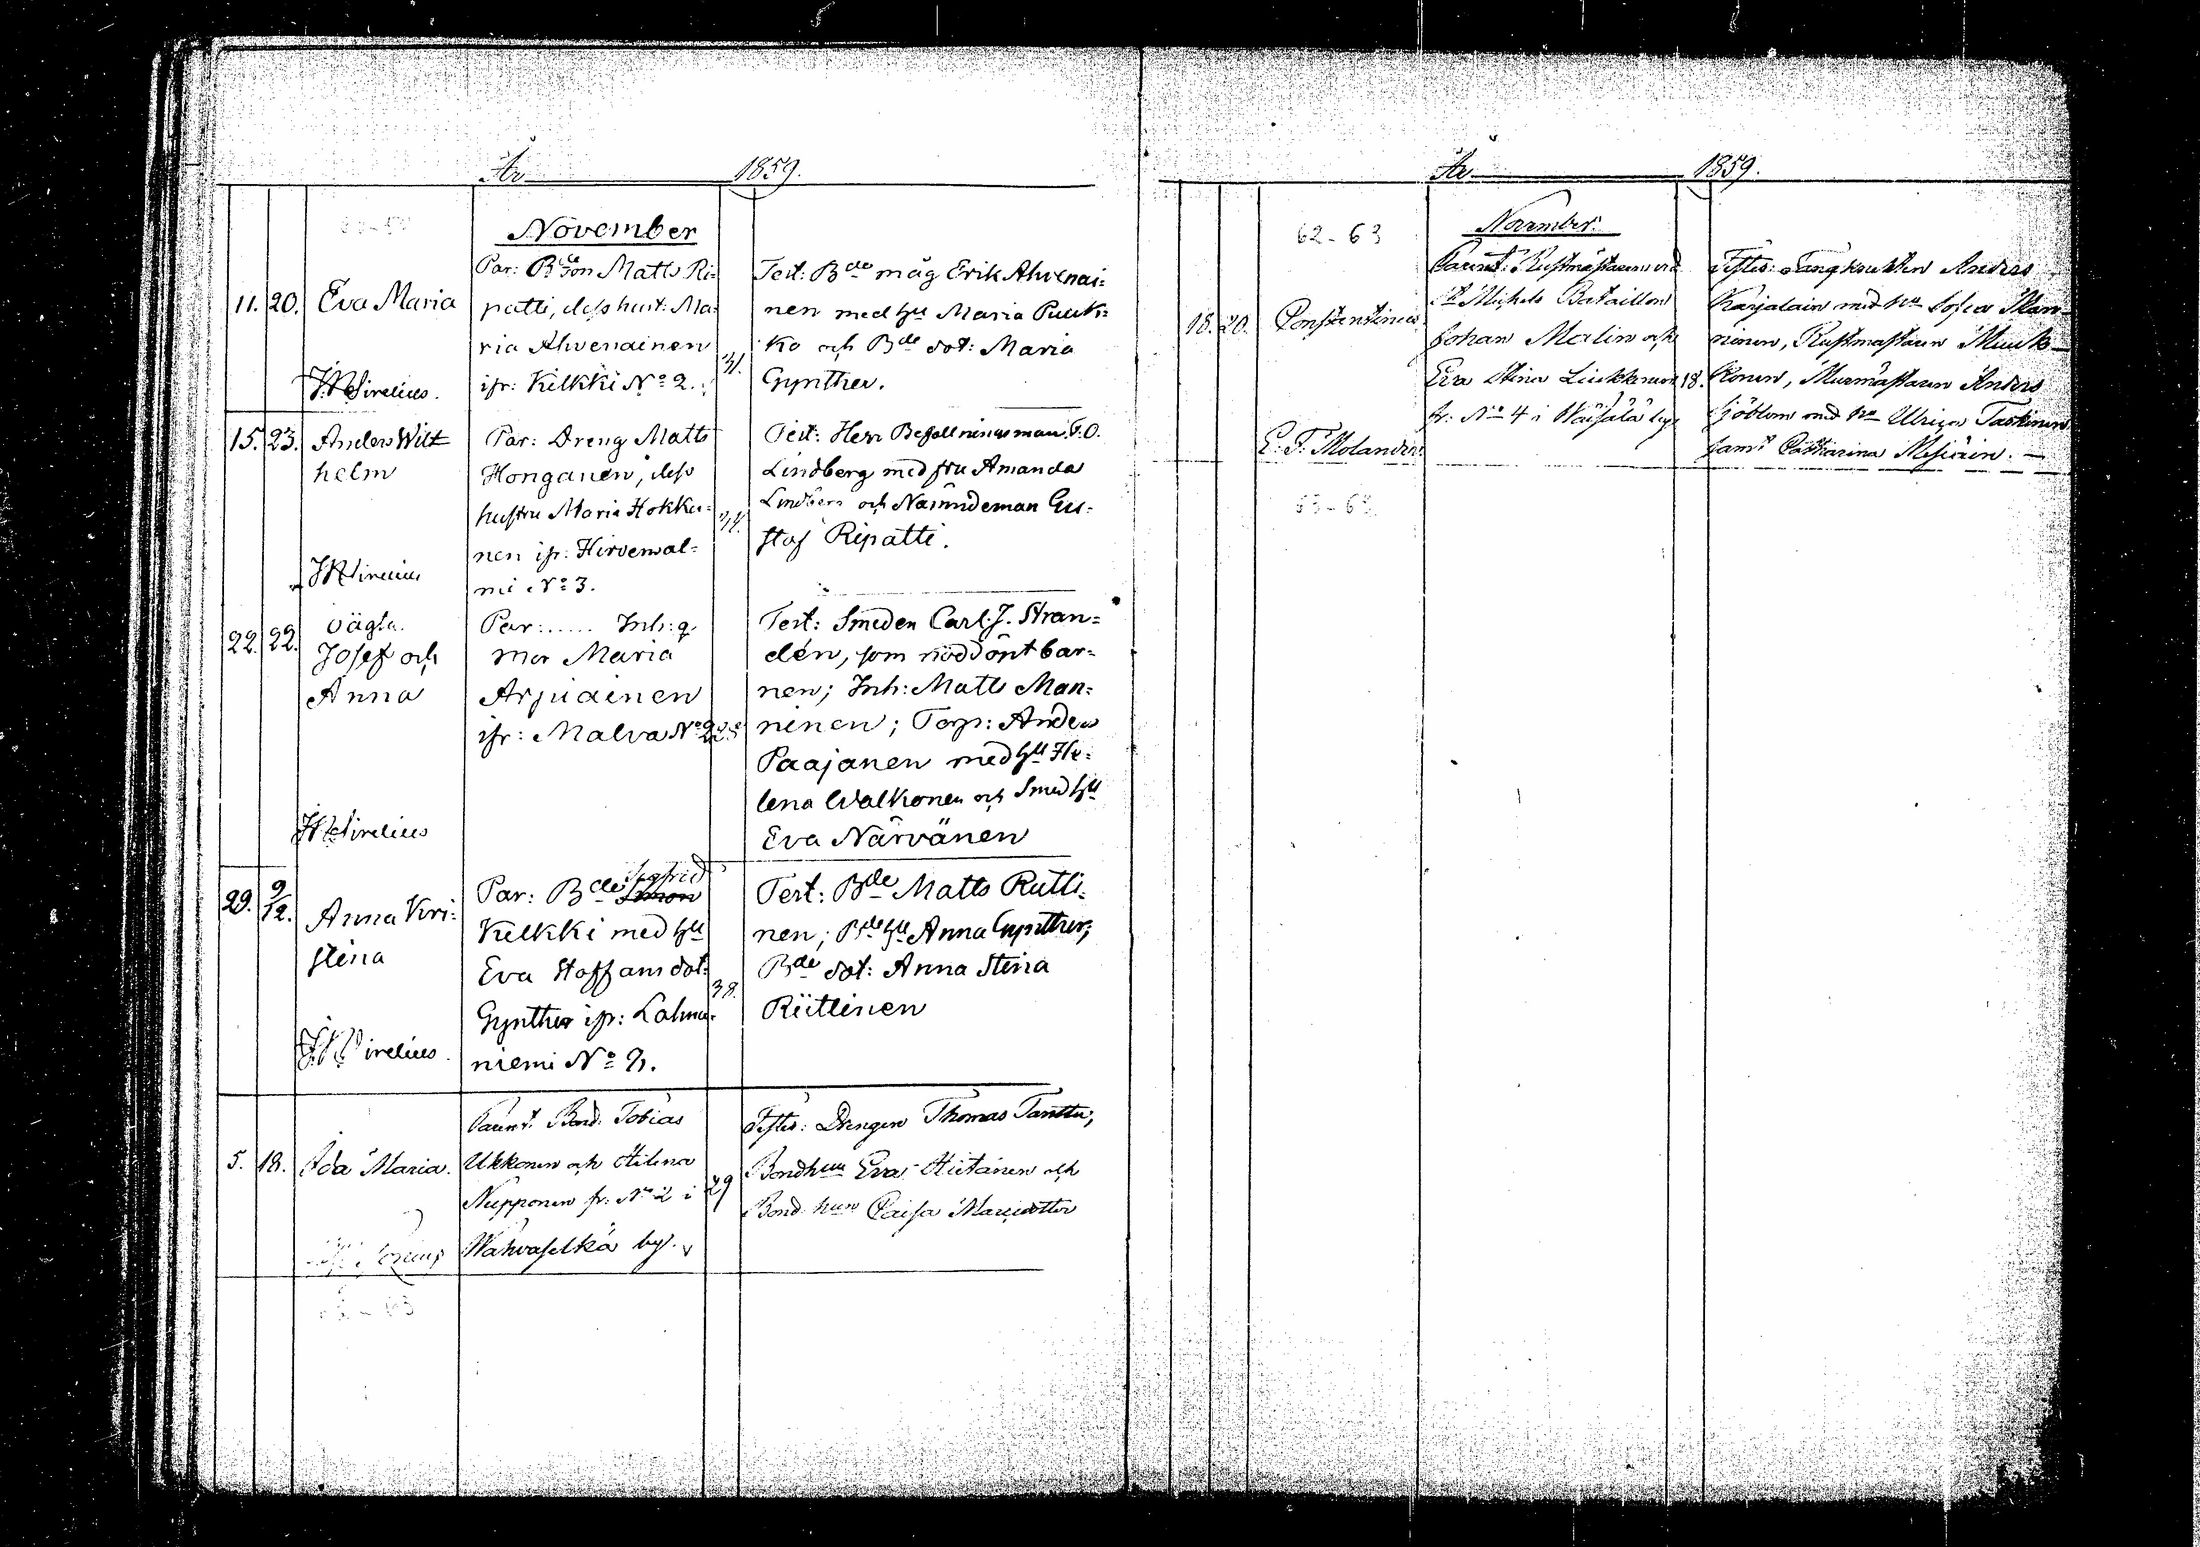 År 1859.
November
11. 20. Eva Maria
JWSirelius.
Par: Bde son Matts Ri=
patti, dess hust: Ma=
ria Ahvenainen
ifr: Kilkki No 2.
31.
Test: Bde måg Erik Ahvenai=
nen med hu Maria Puuk=
ko och Bde dot: Maria
Gynther.
15. 23. Anders Wilt
helm
JWSirelius
Par: Dreng Matts
Honganen, dess
hustru Maria Hokka=
nen ifr: Hirvenal=
mi No 3.
Test: Herr Befallningsman F.O.
Lindberg med fru Amanda
Lindberg och Nämndeman Gus=
staf Ripatti.
22. 22. oägta
Josef och
Anna
JWSirelius
Par: ..... Inh: q.
mor Maria
Arpiainen
ifr: Malva No 2
Test: Smeden Carl J. Stran=
dén, som nöddöpt bar=
nen; Inh: Matts Man=
ninen; Torp: Anders
Paajanen med hu He=
lena Walkonen och Smed hu
Eva Närvänen
29. 9/12. Anna Kri=
stina
JWSirelius.
Par: Bde Sigfrid
Kilkki med hu
Eva Staffansdot:
Gynther ifr: Lahna=
niemi No 2.
38.
Test: Bde Matts Rutti=
nen; Bde hu Anna Gynther;
Bde dot: Anna Stina
Riitlinen
5. 18. Ida Maria.
Parent. Bond. Tobias
Ukkonen och Helena
Nupponen fr: No 2 i
Wahvaselkä by.
29
Testes: Drengen Thomas Tanttu,
Bondhun Eva Hietanen och
Bond hun Caisa
År 1859.
62-63
November.
18. 20. Constantina
E. F. Molander
Parent: Rustmästaren vid
St Michels Bataillon
Johan Malin och
Eva Stina Liukkonen
fr: No 4 i Waisälä by
18.
Testes: Tångknekten Anders
Karjalain med hu Sofia Man=
ninen, Rustmästaren Muuk=
konen, Murmästaren Anders
Sjöblom med hu Ulrica Taskinen
samt Catharina